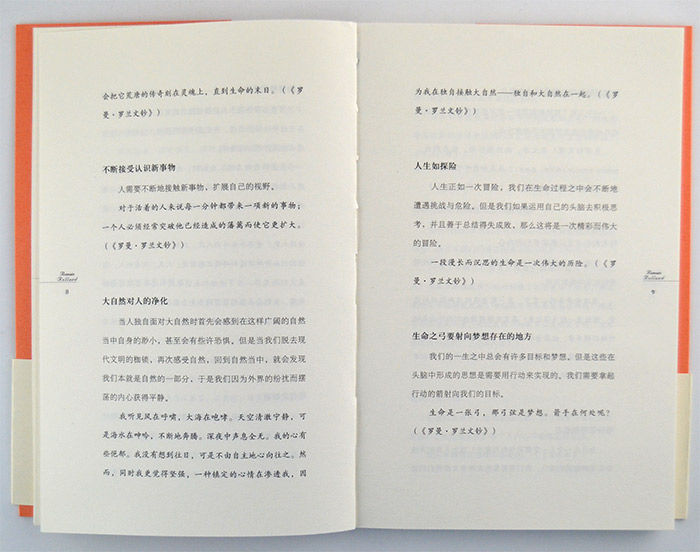 会把它荒唐的传奇刻在灵魂上，直到生命的末日。（《罗
曼·罗兰文钞》）
不断接受认识新事物
人需要不断地接触新事物，扩展自己的视野。
对于活着的人来说每一分钟都带来一项新的事物；
一个人必须经常突破他已经造成的藩篱而使它更扩大。
（《罗曼·罗兰文钞》）
Romain
Rolland
8
大自然对人的净化
当人独自面对大自然时首先会感到在这样广阔的自然
当中自身的渺小，甚至会有些许恐惧。但是当我们脱去现
代文明的枷锁，再次感受自然，回到自然当中，就会发现
我们本就是自然的一部分，于是我们因为外界的纷扰而摆
荡的内心获得平静。
我听见风在呼啸，大海在咆哮。天空清澈宁静，可
是海水在呻吟，不断地奔腾。深夜中声息全无。我的心有
些怅郁。我没有想到往日，可是不由自主地心向往之。然
而，同时我更觉得坚强，一种镇定的心情在渗透我，因
为我在独自接触大自然——独自和大自然在一起。（《罗
曼·罗兰文钞》）
人生如探险
人生正如一次冒险，我们在生命过程之中会不断地
遭遇挑战与危险。但是我们如果运用自己的头脑去积极思
考，并且善于总结得失成败，那么这将是一次精彩而伟大
的冒险。
一段漫长而沉思的生命是一次伟大的历险。（《罗
曼·罗兰文钞》）
Romain
Rolland
9
生命之弓要射向梦想存在的地方
我们的一生之中总会有许多目标和梦想，但是这些在
头脑中形成的思想是需要用行动来实现的。我们需要拿起
行动的箭射向我们的目标。
生命是一张弓，那弓弦是梦想。箭手在何处呢？
（《罗曼·罗兰文钞》）